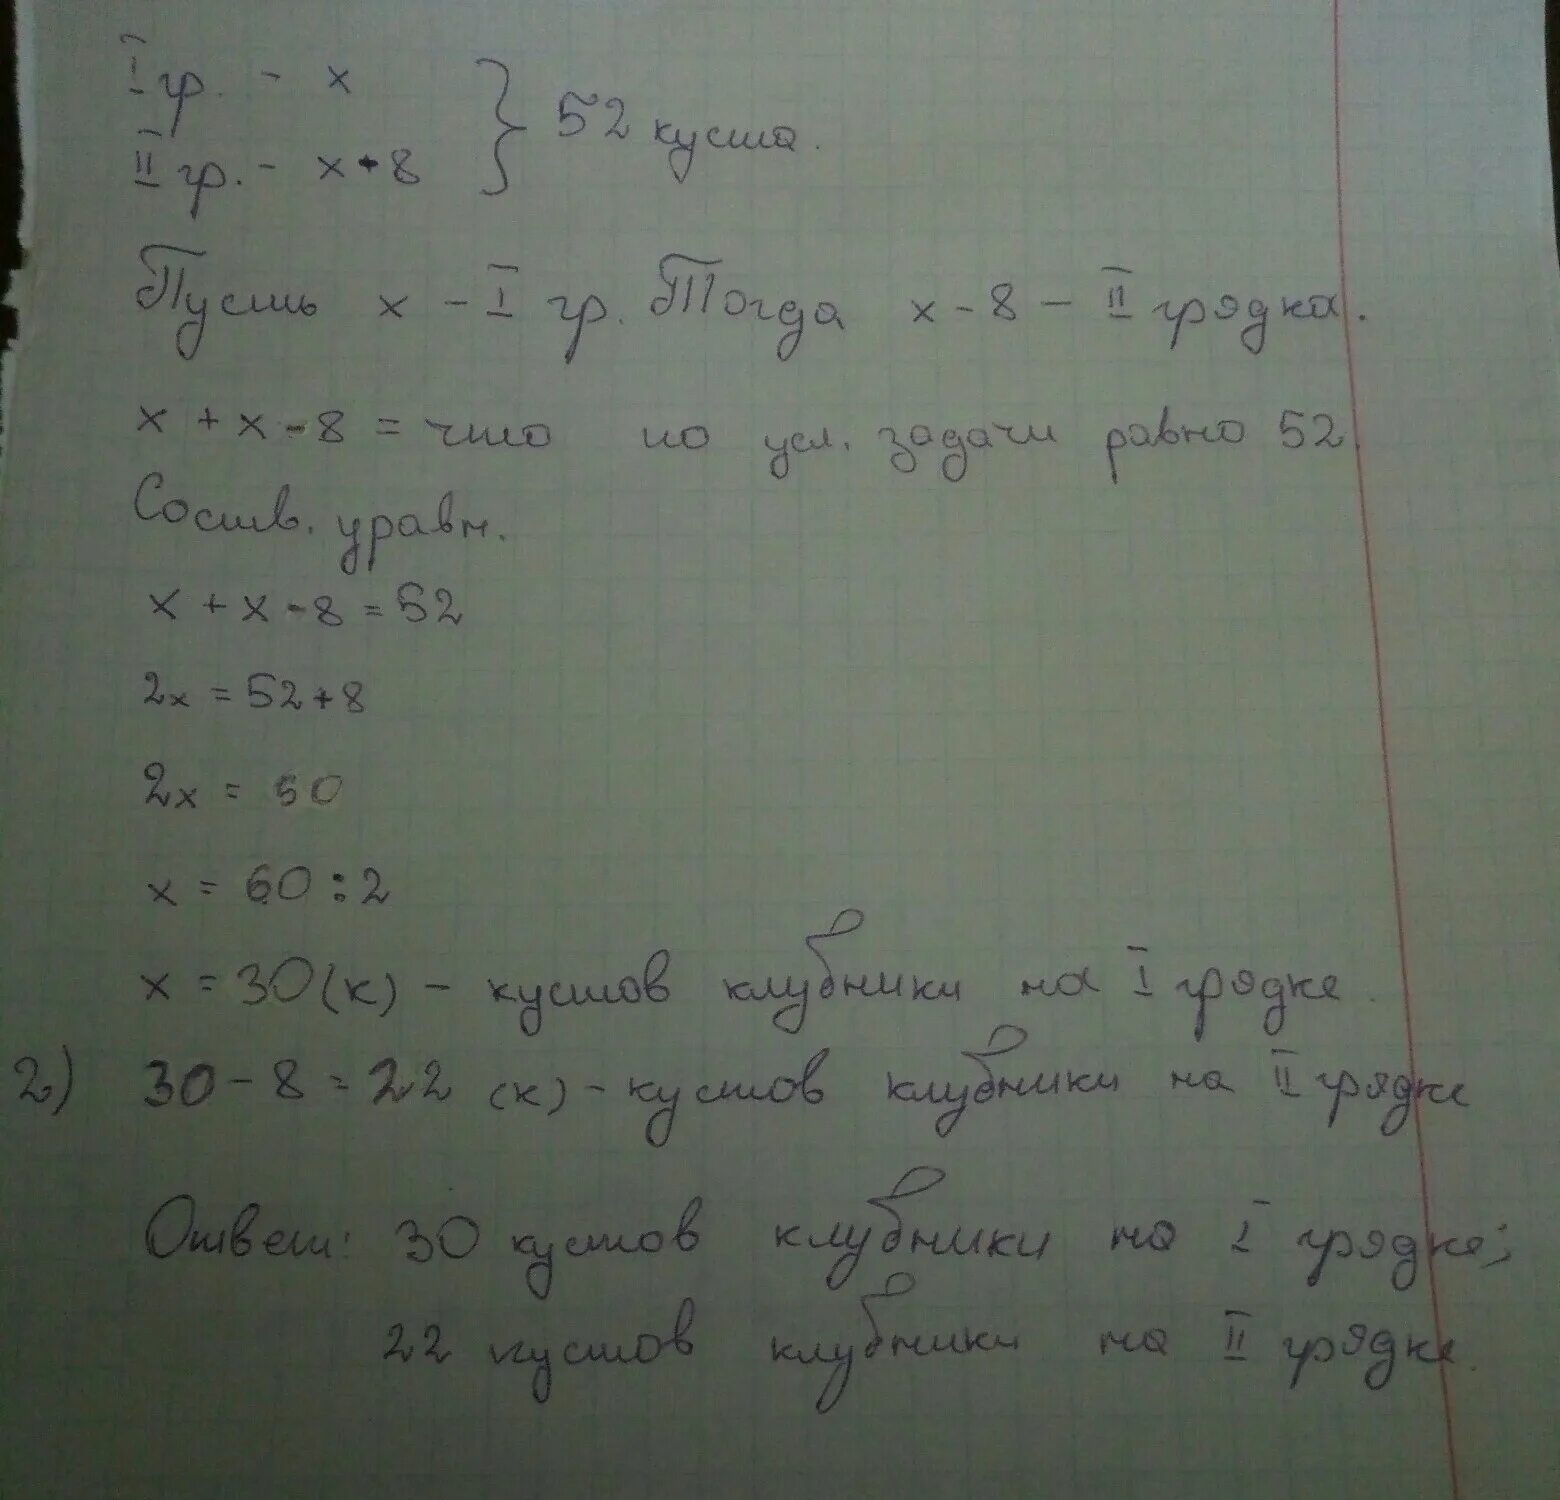 I гр. - x } 52 куста.
II гр. - x - 8
Пусть x - I гр. Тогда x - 8 - II грядка.
x + x - 8 = что по усл. задачи равно 52
Соств. уравн.
x + x - 8 = 52
2x = 52 + 8
2x = 60
x = 60 : 2
x = 30 (к) - кустов клубники на I грядке.
2) 30 - 8 = 22 (к) - кустов клубники на II грядке
Ответ: 30 кустов клубники на I грядке;
22 кустов клубники на II грядке.